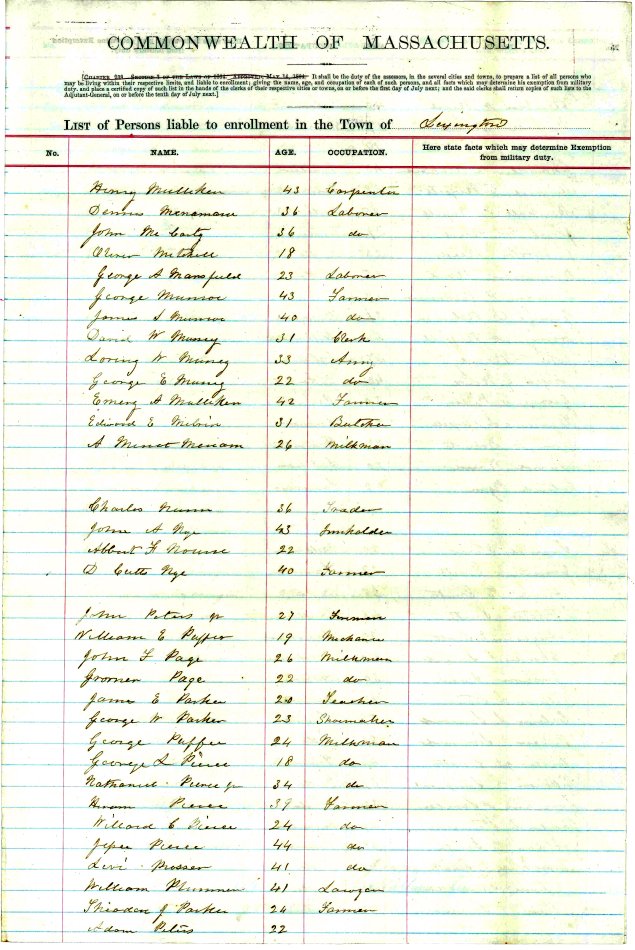 COMMONWEALTH OF MASSACHUSETTS.
[Chapter 238, Section 5 of the Laws of 1864, Approved, May 14, 1864.] It shall be the duty of the assessors, in the several cities and towns, to prepare a list of all persons who
may be living within their respective limits, and liable to enrollment; giving the name, age, and occupation of each of such persons, and all facts which may determine his exemption from military
duty, and place a certified copy of such list in the hands of the clerks of their respective cities or towns, on or before the first day of July next; and the said clerks shall return copies of such lists to the
Adjutant-General, on or before the tenth day of July next.]
List of Persons liable to enrollment in the Town of Lexington
No. NAME. AGE. OCCUPATION. Here state facts which may determine Exemption
from military duty.
Henry Mulliken 43 Carpenter
Dennis McNamara 36 Laborer
John McCarty 36 do
Oliver Mitchell 18
George A Mansfield 23 Laborer
George Munroe 43 Farmer
James S Munroe 40 do
David W Muzzey 31 Clerk
Loring W Muzzey 33 Army
George E Muzzey 22 do
Emery A Mulliken 42 Farmer
Edward E 31 Butcher
A Minot Meriam 26 Milkman
Charles Nunn 36 Trader
John A Nye 43 Innholder
Abbert F Nourse 22
D Cutts Nye 40 Farmer
John Peters jr 27
William E Puffer 19 Mechanic
John F Page 26 Milkman
Page 22 do
James E Parker 20 Teacher
George W Parker 23 Shoemaker
George Puffer 24 Milkman
George L Pierce 18 do
Nathaniel Pierce jr 34 do
Hiram Pierce 39 Farmer
Willard C Pierce 24 do
Jesse Pierce 44 do
Levi Prosser 41 do
William Plummer 41 Lawyer
J Parker 24 Farmer
Adam Peters 22